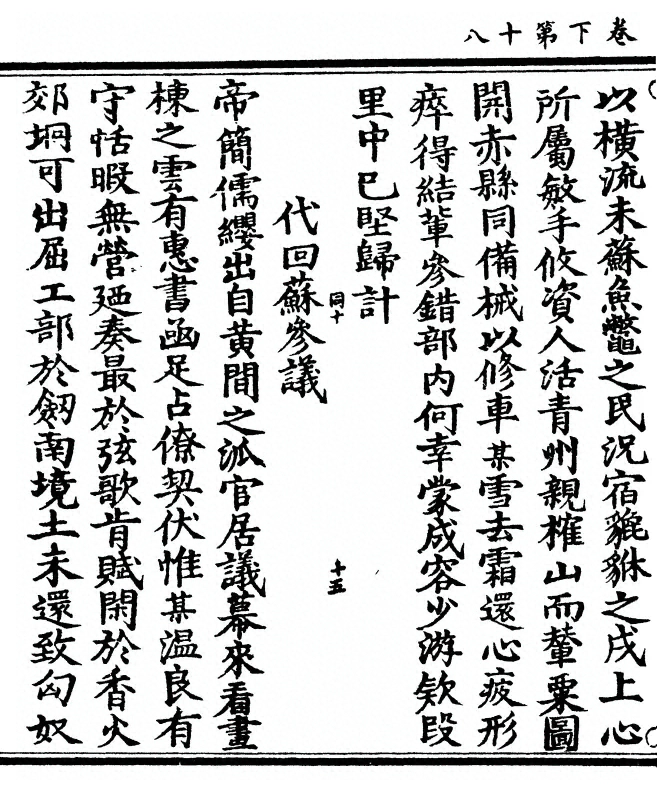 卷下第十八
以横流未蘇魚鼈之民況宿貔貅之戍上心
所屬敏手攸資人活青州親榷山而輦粟圖
開赤縣同備械以修車某雪去霜還心疲形
瘁得結軰參錯部内何幸蒙成容少游欵段
里中已堅歸計
代回蘇參議
同十
十五
帝簡儒纓出自黄間之派官居議幕來看畫
棟之雲有惠書函足占僚契伏惟某温良有
守恬暇無營廼奏最於弦歌肯賦閑於香火
郊坰可出屈工部於劒南境土未還致匈奴